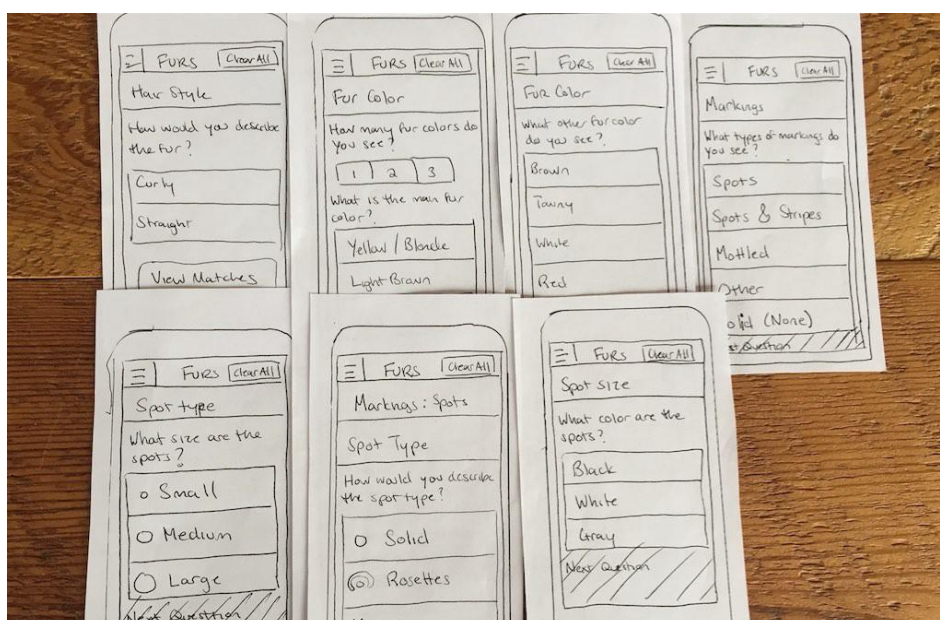 FURS Clear All
Hair Style
How would you describe
the fur?
Curly
Straight
View Matches
FURS Clear All
Fur Color
How many fur colors do
you see?
1 2 3
What is the main fur
color?
Yellow / Blonde
Light Brown
FURS Clear All
Fur Color
What other fur color
do you see?
Brown
Tawny
White
Red
FURS Clear All
Markings
What types of markings do
you see?
Spots
Spots & Stripes
Mottled
Other
olid (None)
xt Question
FURS Clear All
Spot type
What size are the
spots?
Small
Medium
Large
Next Question
FURS Clear All
Markngs: Spots
Spot Type
How would you describe
the spot type?
Solid
Rosettes
FURS Clear All
Spot size
What color are the
spots?
Black
White
Gray
Next Question